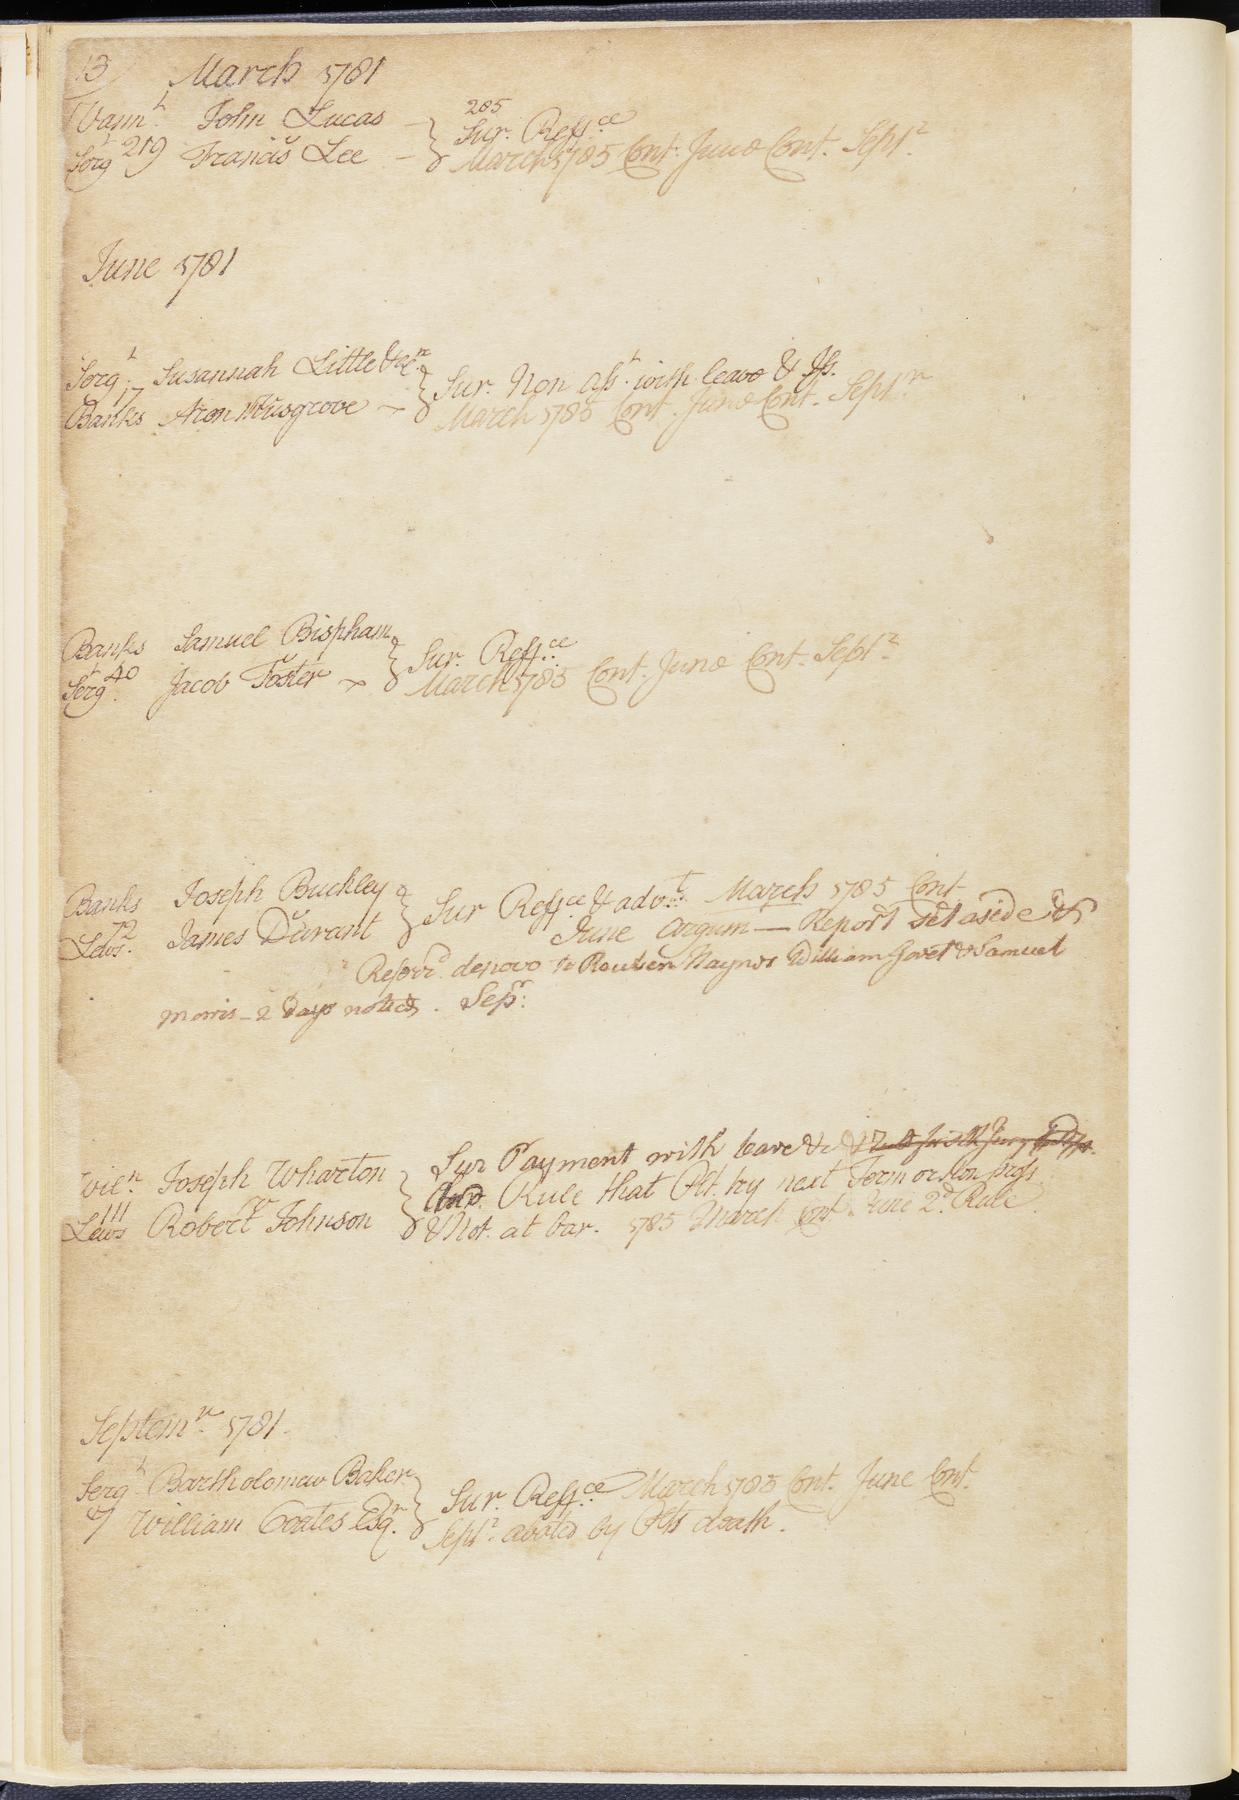 13 March 1781
Vann.t John Lucas
285
Sur. Reff.ce
Serg.t 219 Francis Lee
March 1785 Cont. June Cont. Sept.r
June 1781
Serg.t Susannah Little &c.n
17
Sur. Non Ass.t with leave & Iss.
Banks Aron Musgrove
March 1785 Cont. June Cont. Sept.r
Banks Samuel Bispham
Sur. Reff.ce
40
Serg.t Jacob Foster
March 1785 Cont. June Cont. Sept.r
Banks Joseph Buckley
Sur Reff.ce & adv.t March 1785 Cont
72
Lews. James Durant
June Argum — Report set aside &
Referr.d denovo to Reuben Haynes William Govet & Samuel
Morris - 2 days notice. Sep.r:
Wil.n Joseph Wharton
Sur Payment with leave &c &
111
Rule that Plt. try next Term or Non pross
Lews Robert Johnson
& Not. at bar. 1785 March Cont. June 2.d Rule
Septem.r 1781.
Serg.t Bartholomew Baker
Sur. Reff.ce March 1785 Cont. June Cont.
7 William Coates Esq.r
Sept.r abated by Plts death.